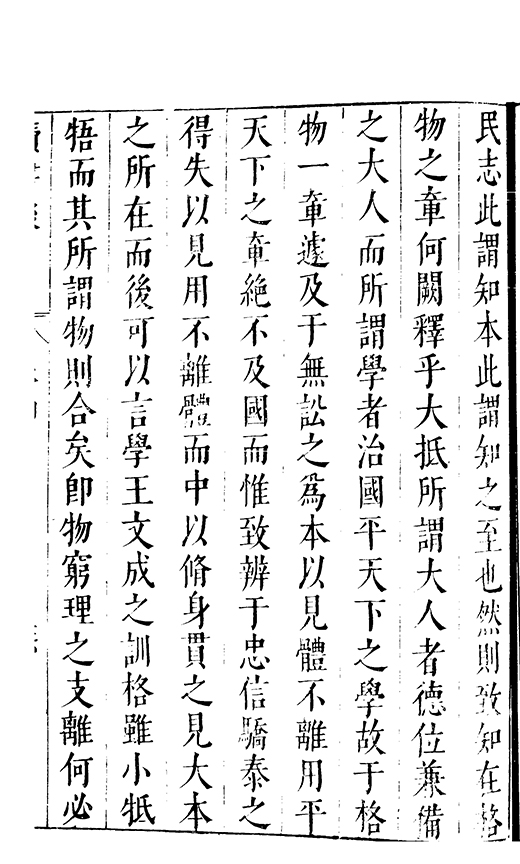 民志此謂知本此謂知之至也然則致知在格
物之章何闕釋乎大抵所謂大人者德位兼備
之大人而所謂學者治國平天下之學故于格
物一章遽及于無訟之爲本以見體不離用平
天下之章絶不及國而惟致辨于忠信驕泰之
得失以見用不離體而中以脩身貫之見大本
之所在而後可以言學王文成之訓格雖小牴
牾而其所謂物則合矣卽物窮理之支離何必